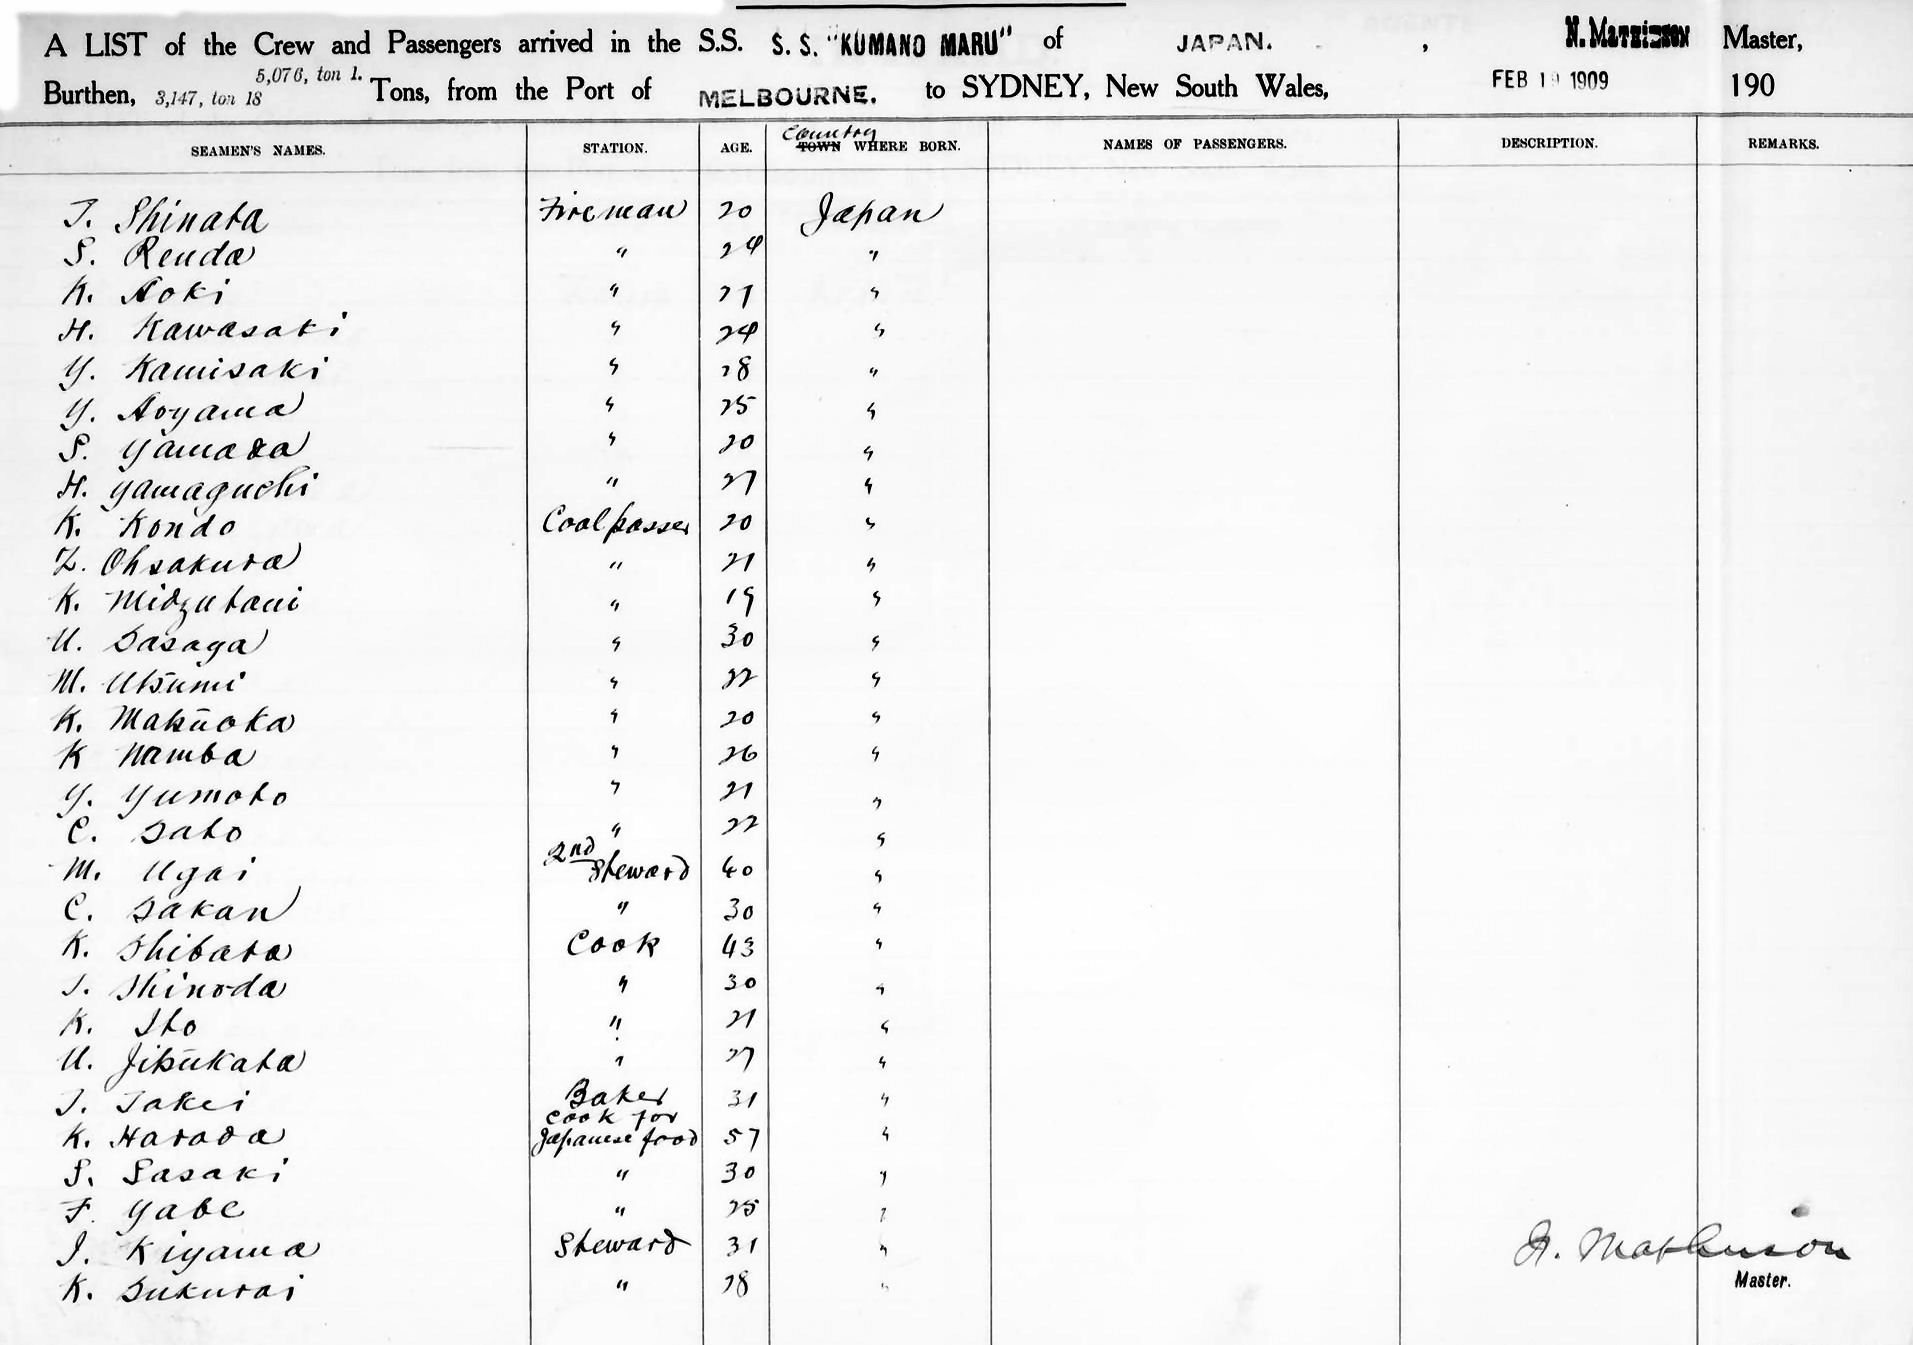 A LIST of the Crew and Passengers arrived in the S.S. S. S. "KUMANO MARU" of JAPAN. , N. MATHIESON Master,
Burthen, 3,147, ton 18 5,076, ton 1. Tons, from the Port of MELBOURNE. to SYDNEY, New South Wales, FEB 1 1909 190
SEAMEN'S NAMES. STATION. AGE. Country TOWN WHERE BORN. NAMES OF PASSENGERS. DESCRIPTION. REMARKS.
T. Shinata Fireman 20 Japan
S. Renda " 24 "
K. Aoki " 21 "
H. Kawasaki " 24 "
Y. Kamisaki " 28 "
Y. Aoyama " 25 "
S. Yamada " 20 "
H. Yamaguchi " 27 "
K. Kondo Coalpasser 20 "
Z. Ohsakura " 21 "
K. Midzutani " 19 "
U. Sasaga " 30 "
M. Utsumi " 22 "
K. Matsuoka " 20 "
K Namba " 26 "
Y. Yumoto " 21 "
C. Sato " 22 "
M. Ugai 2nd Steward 40 "
C. Sakan " 30 "
K. Shibata Cook 43 "
T. Shinoda " 30 "
K. Ito " 21 "
U. Jitsukata " 27 "
T. Takei Baker 31 "
K. Harada Cook for Japanese food 57 "
S. Sasaki " 30 "
F. Yabe " 25 "
I. Kiyama Steward 31 "
K. Sukurai " 28 "
N. Mathieson
Master.